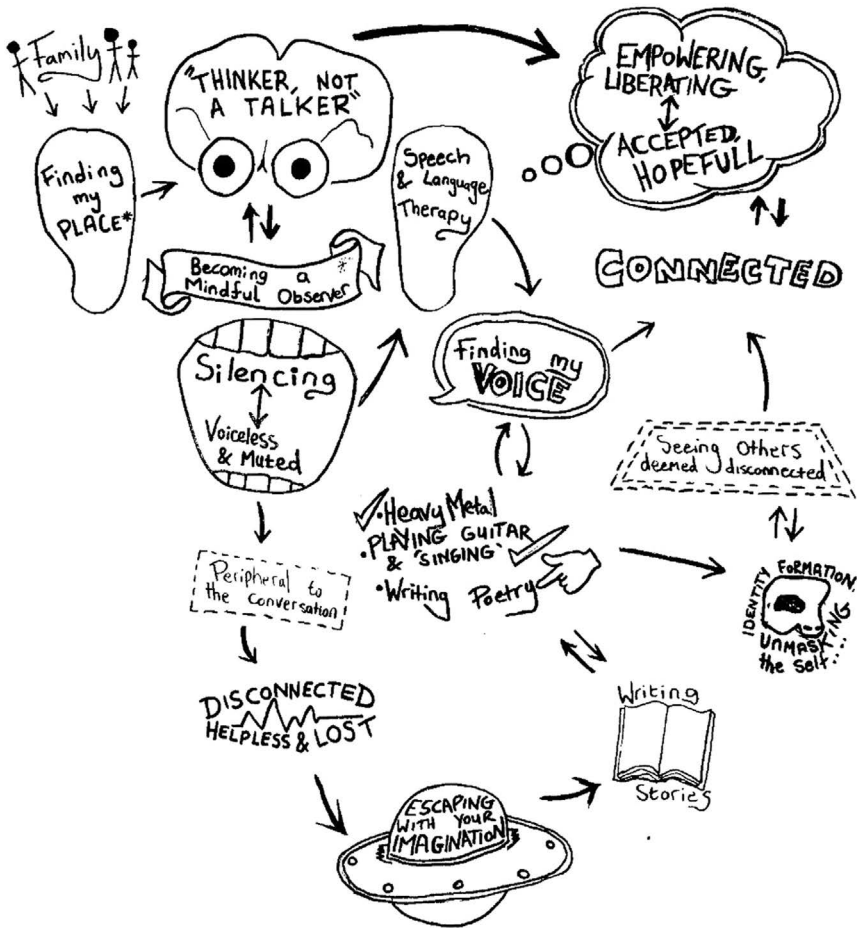 Family
"THINKER, NOT
A TALKER"
EMPOWERING,
LIBERATING
ACCEPTED,
HOPEFULL
Finding
my
PLACE*
Speech
& Language
Therapy
Becoming a *
Mindful Observer
CONNECTED
Silencing
Voiceless
& Muted
Finding my
VOICE
Seeing Others
deemed disconnected
• Heavy Metal
• PLAYING GUITAR
& 'SINGING'
• Writing Poetry
Peripheral to
the conversation
IDENTITY FORMATION,
UNMASKING
the self....
DISCONNECTED
HELPLESS & LOST
Writing
Stories
ESCAPING
WITH YOUR
IMAGINATION